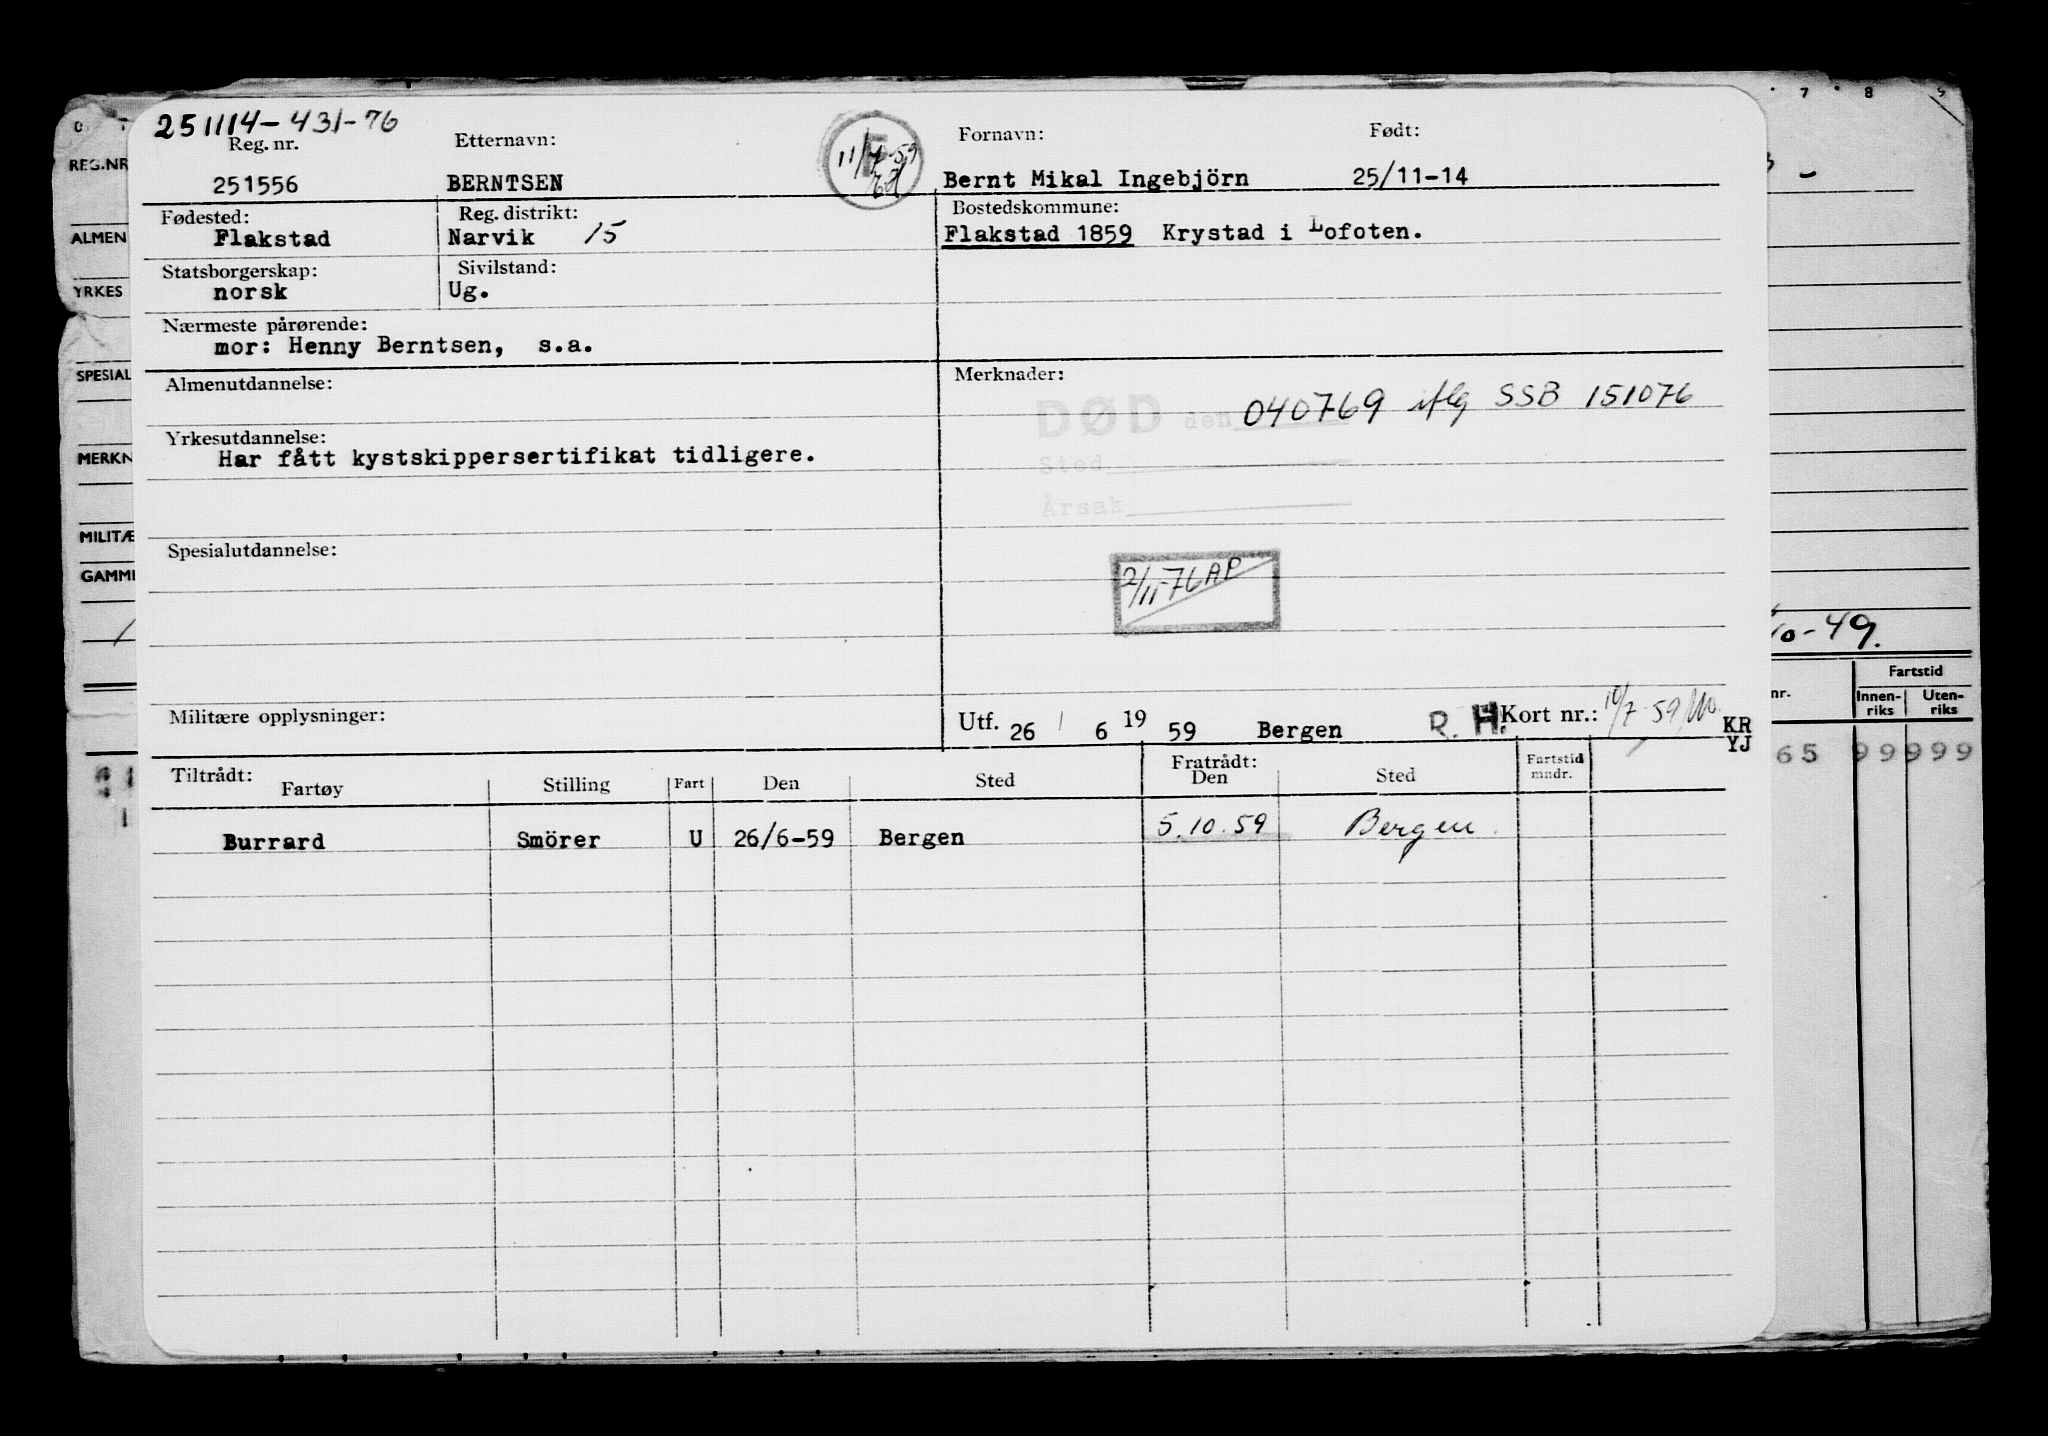 251114-431-76
Reg. nr. Etternavn: Fornavn: Født:
251556 BERNTSEN 11/7-59 Bernt Mikal Ingebjörn 25/11-14
Fødested: Reg. distrikt: Bostedskommune:
Flakstad Narvik 15 Flakstad 1859 Krystad i Lofoten.
Statsborgerskap: Sivilstand:
norsk Ug.
Nærmeste pårørende:
mor: Henny Berntsen, s.a.
Almenutdannelse: Merknader:
DØD den 040769 iflg SSB 151076
Yrkesutdannelse:
Har fått kystskippersertifikat tidligere.
Sted
Årsak
Spesialutdannelse:
2/11-76 AP
Militære opplysninger: Utf. 26 / 6 19 59 Bergen R. H. Kort nr.: 10/7-59
KR
YJ
Tiltrådt: Fratrådt:
Fartøy Stilling Fart Den Sted Den Sted Fartstid mndr.
Burrard Smörer U 26/6-59 Bergen 5.10.59 Bergen.
REG.NR
ALMEN
YRKES
SPESIAL
MERKN
MILITÆ
GAMME
7 8
10-49.
nr. Fartstid
Innen-riks Uten-riks
65 99999